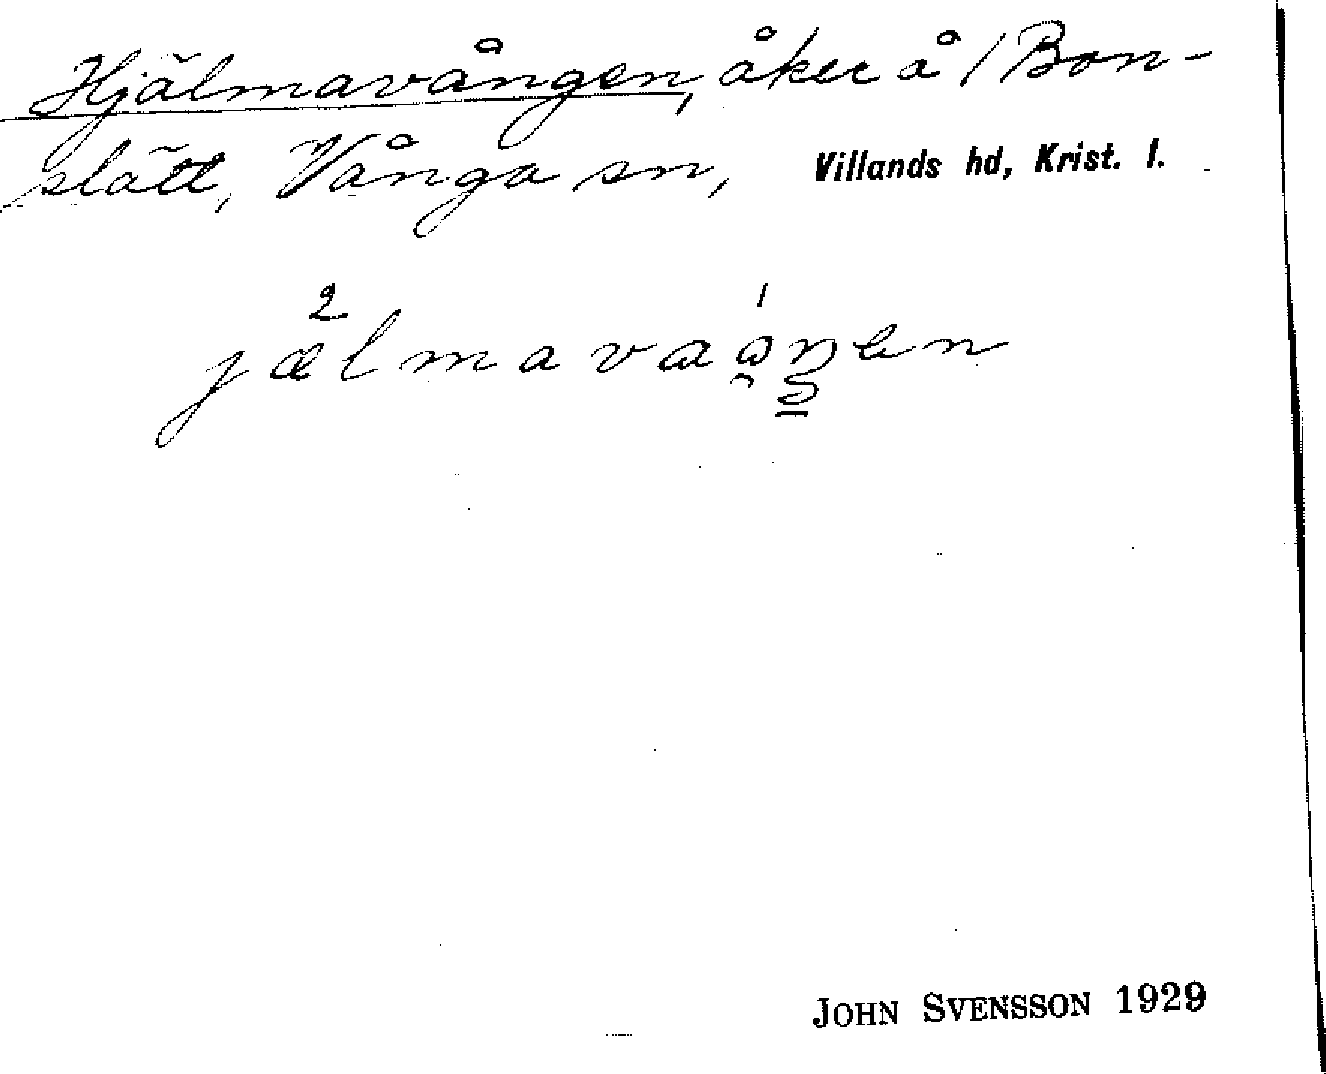 Hjälmavången, åker å / Bon-
slätt, Vånga sn, Villands hd, Krist. l.
jælmavaa̯ŋen
JOHN SVENSSON 1929